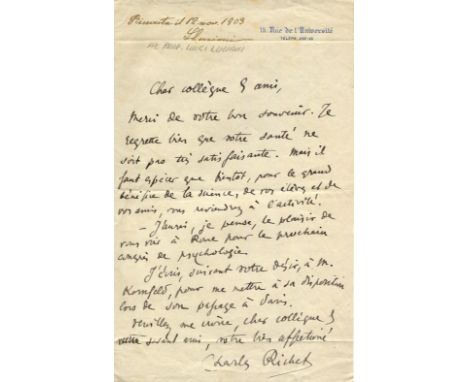 Ricevuta il 12 nov. 1903
L. Luciani
AL PROF. LUIGI LUCIANI
15 Rue de l'Université
Cher collègue & ami,
Merci de votre bon souvenir. Je
regrette bien que votre santé ne
soit pas très satisfaisante. Mais il
faut espérer que bientôt, pour le grand
bénéfice de la science, de vos élèves et de
vos amis, vous reviendrez à l'activité.
– J'aurai, je pense, le plaisir de
vous voir à Rome pour le prochain
congrès de psychologie.
J'écris, suivant votre désir, à M.
Kornfeld, pour me mettre à sa disposition
lors de son passage à Paris.
Veuillez me croire, cher collègue &
savant ami, votre bien affectionné
Charles Richet